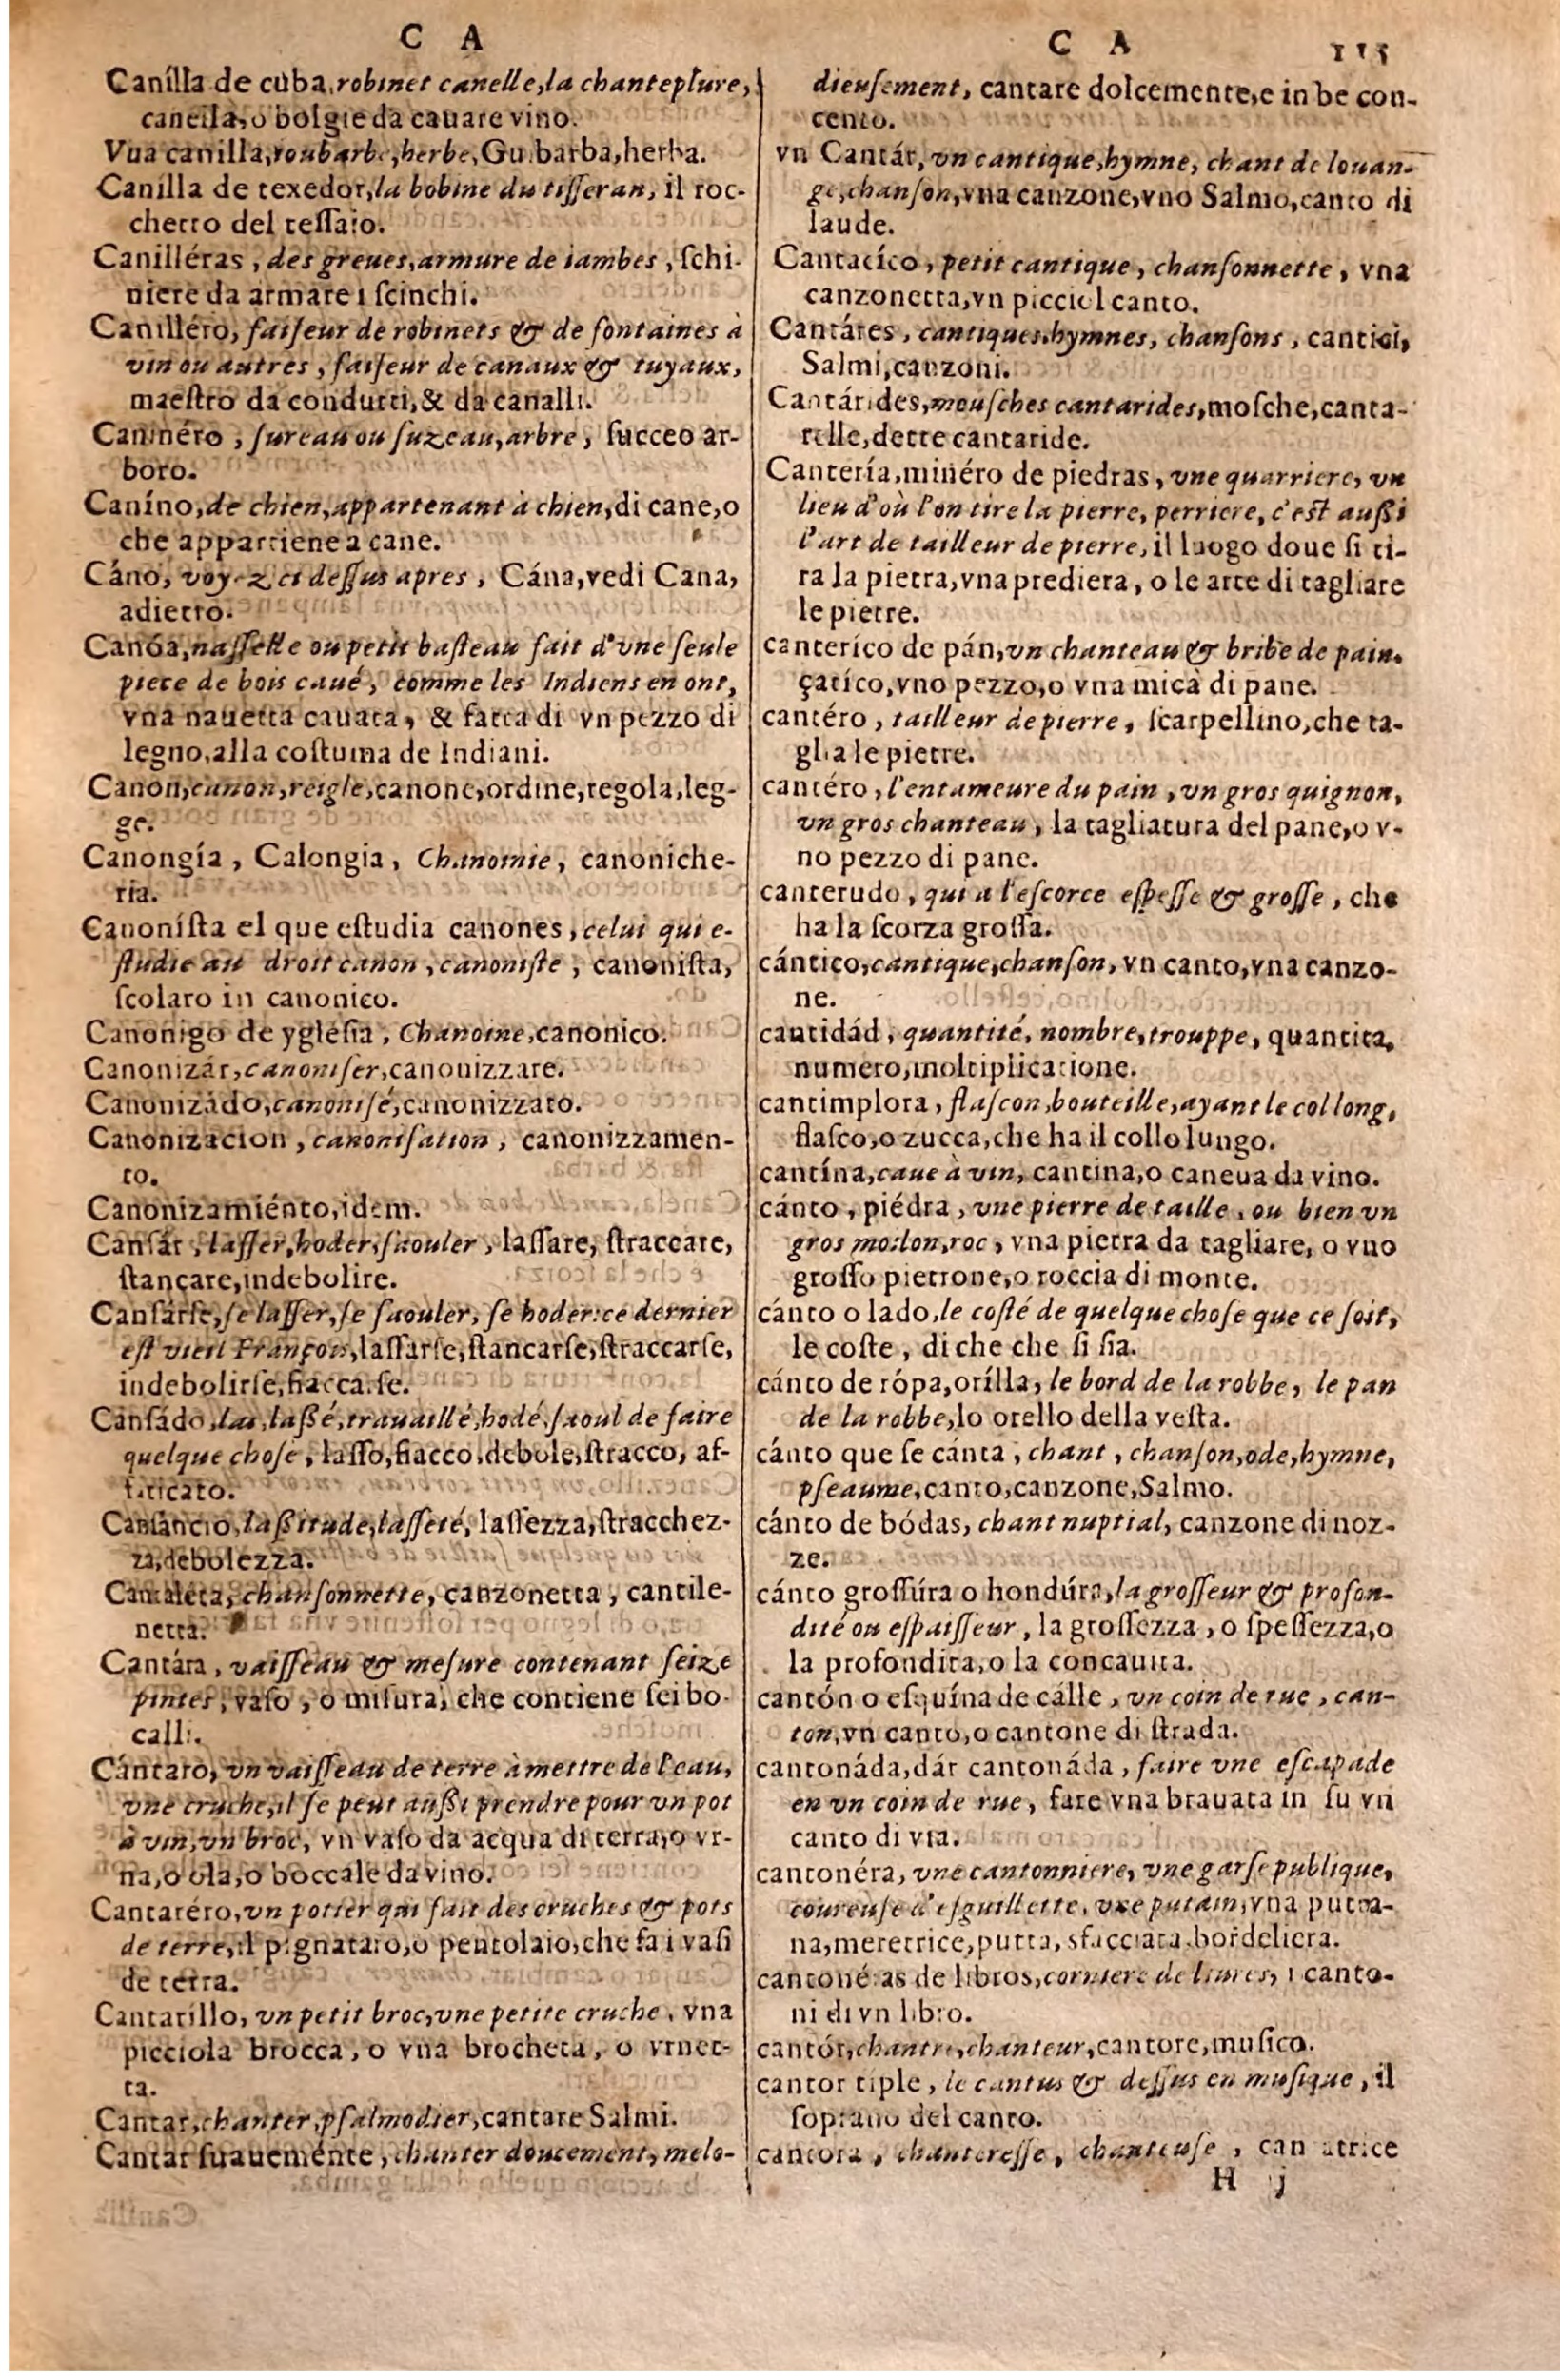 C A
Canílla de cuba, robinet canelle, la chantepleure,
canella, o bolgie da cauare vino.
Vua canilla, roubarbe, herbe, Gu. barba, herba.
Canilla de texedor, la bobine du tisseran, il roc-
chetto del teſſaio.
Canilléras, des greues, armure de iambes, ſchi-
niere da armare i ſcinchi.
Canilléro, faiſeur de robinets & de fontaines à
vin ou autres, faiſeur de canaux & tuyaux,
maeſtro da condutti, & da canalli.
Caninéro, ſureau ou ſuzeau, arbre, ſucceo ar-
boro.
Caníno, de chien, appartenant à chien, di cane, o
che appartiene a cane.
Cáno, voyez ci deſſus apres, Cána, vedi Cana,
adietro.
Canóa, naſſelle ou petit baſteau fait d'vne ſeule
piece de bois caué, comme les Indiens en ont,
vna nauetta cauata, & fatta di vn pezzo di
legno, alla coſtuma de Indiani.
Canon, canon, reigle, canone, ordine, regola, leg-
ge.
Canongía, Calongia, Chanoinie, canoniche-
ria.
Canoníſta el que eſtudia canones, celui qui e-
ſtudie au droit canon, canoniſte, canoniſta,
ſcolaro in canonico.
Canonigo de ygleſia, Chanoine, canonico.
Canonizár, canoniſer, canonizzare.
Canonizádo, canoniſé, canonizzato.
Canonizacion, canoniſation, canonizzamen-
to.
Canonizamiénto, idem.
Canſár, laſſer, hoder, ſaouler, laſſare, ſtraccare,
ſtançare, indebolire.
Canſárſe, ſe laſſer, ſe ſaouler, ſe hoder: ce dernier
eſt vieil François, laſſarſe, ſtancarſe, ſtraccarſe,
indebolirſe, fiaccarſe.
Canſádo, las, laßé, trauaillé, hodé, ſaoul de faire
quelque choſe, laſſo, fiacco, debole, ſtracco, af-
faticato.
Canſáncio, laßitude, laſſeté, laſſezza, ſtracchez-
za, debolezza.
Cantaléta, chanſonnette, canzonetta, cantile-
netta.
Cantára, vaiſſeau & meſure contenant ſeize
pintes, vaſo, o miſura, che contiene ſei bo-
calli.
Cántaro, vn vaiſſeau de terre à mettre de l'eau,
vne cruche, il ſe peut außi prendre pour vn pot
à vin, vn broc, vn vaſo da acqua di terra, o vr-
na, o ola, o boccale da vino.
Cantaréro, vn potier qui fait des cruches & pots
de terre, il pignataro, o pentolaio, che fa i vaſi
de terra.
Cantarillo, vn petit broc, vne petite cruche, vna
picciola brocca, o vna brocheta, o vrnet-
ta.
Cantar, chanter, pſalmodier, cantare Salmi.
Cantar ſuaueménte, chanter doucement, melo-
C A 115
dieuſement, cantare dolcemente, e in be con-
cento.
vn Cantár, vn cantique, hymne, chant de louan-
ge, chanſon, vna canzone, vno Salmo, canto di
laude.
Cantacíco, petit cantique, chanſonnette, vna
canzonetta, vn picciol canto.
Cantáres, cantiques, hymnes, chanſons, cantici,
Salmi, canzoni.
Cantárides, mouſches cantarides, moſche, canta-
relle, dette cantaride.
Cantería, minéro de piedras, vne quarriere, vn
lieu d'où l'on tire la pierre, perriere, c'eſt außi
l'art de tailleur de pierre, il luogo doue ſi ti-
ra la pietra, vna prediera, o le arte di tagliare
le pietre.
canteríco de pán, vn chanteau & bribe de pain,
çatíco, vno pezzo, o vna mica di pane.
cantéro, tailleur de pierre, ſcarpellino, che ta-
glia le pietre.
cantéro, l'entameure du pain, vn gros quignon,
vn gros chanteau, la tagliatura del pane, o v-
no pezzo di pane.
canterudo, qui a l'eſcorce eſpeſſe & groſſe, che
ha la ſcorza groſſa.
cántico, cantique, chanſon, vn canto, vna canzo-
ne.
cantidád, quantité, nombre, trouppe, quantita,
numero, moltiplicatione.
cantimplora, flaſcon, bouteille, ayant le col long,
flaſco, o zucca, che ha il collo lungo.
cantína, caue à vin, cantina, o caneua da vino.
cánto, piédra, vne pierre de taille, ou bien vn
gros moilon, roc, vna pietra da tagliare, o vno
groſſo pietrone, o roccia di monte.
cánto o lado, le coſté de quelque choſe que ce ſoit,
le coſte, di che che ſi ſia.
cánto de rópa, orílla, le bord de la robbe, le pan
de la robbe, lo orello della veſta.
cánto que ſe cánta, chant, chanſon, ode, hymne,
pſeaume, canto, canzone, Salmo.
cánto de bódas, chant nuptial, canzone di noz-
ze.
cánto groſſúra o hondúra, la groſſeur & profon-
dité ou eſpaiſſeur, la groſſezza, o ſpeſſezza, o
la profondita, o la concauita.
cantón o eſquína de cálle, vn coin de rue, can-
ton, vn canto, o cantone di ſtrada.
cantonáda, dár cantonáda, faire vne eſcapade
en vn coin de rue, fare vna brauata in ſu vn
canto di via.
cantonéra, vne cantonniere, vne garſe publique,
coureuſe d'eſguillette, vne putain, vna putta-
na, meretrice, putta, sfacciata, bordeliera.
cantonéras de libros, corniere de liures, i canto-
ni di vn libro.
cantór, chantre, chanteur, cantore, muſico.
cantor tiple, le cantus & deſſus en muſique, il
ſoprano del canto.
cantora, chantereſſe, chanteuſe, cantatrice
H j